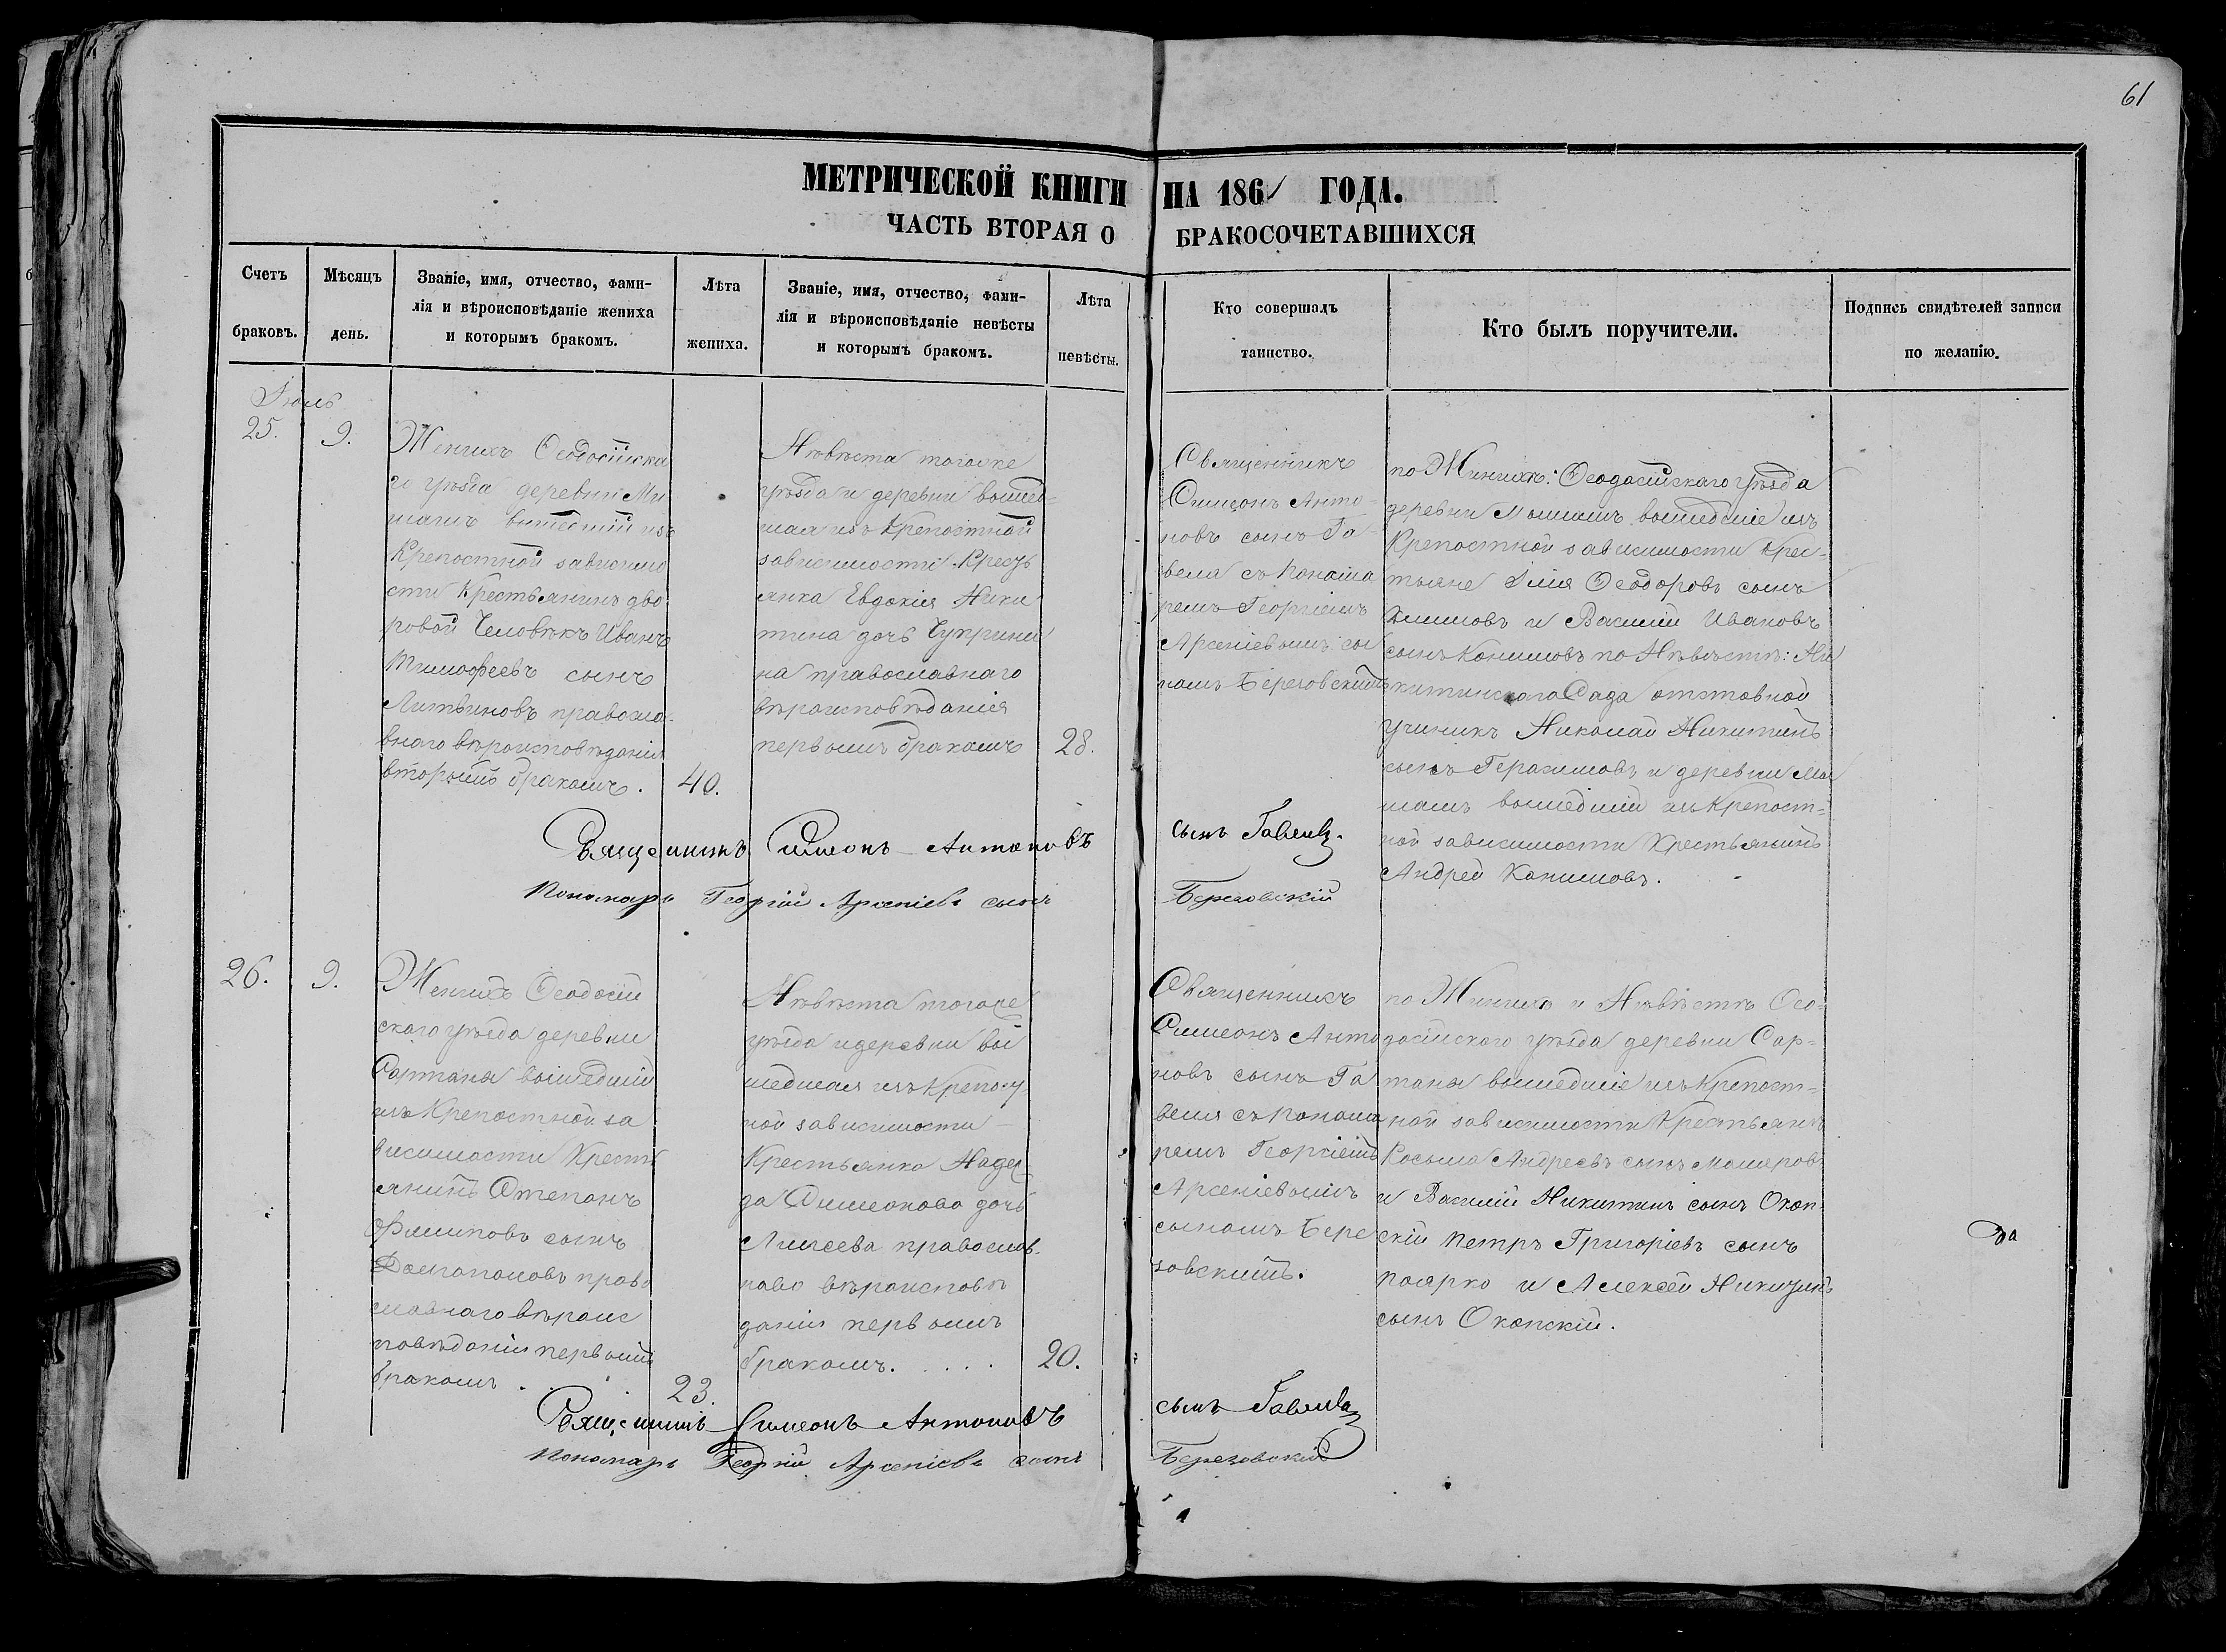 61
МЕТРИЧЕСКОЙ КНИГИ НА 1861 ГОДА.
ЧАСТЬ ВТОРАЯ О БРАКОСОЧЕТАВШИХСЯ
Счетъ
браковъ.
Мѣсяцъ
день.
Званіе, имя, отчество, фами-
лія и вѣроисповѣданіе жениха
и которымъ бракомъ.
Лѣта
жениха.
Званіе, имя, отчество, фами-
лія и вѣроисповѣданіе невѣсты
и которымъ бракомъ.
Лѣта
невѣсты.
Кто совершалъ
таинство.
Кто былъ поручители.
Подпись свидѣтелей записи
по желанію.
Іюль
25.
9.
Женихъ Ѳеодосійска
го уѣзда деревни
изъ
Крепостной зависимо
сти Крестьянинъ дво
ровой Человѣкъ Иванъ
Тимофеевъ сынъ
Литвиновъ правосла-
внаго вѣроисповѣданія
вторымъ бракомъ.
40.
Невѣста тогоже
уѣзда и деревни вышед-
шая изъ Крепостной
зависимости Кресть
янка Евдокія Ники
тина дочь Чуприни
на православнаго
вѣроисповѣданія
первымъ бракомъ
28.
Священникъ
Симеонъ Анто-
новъ сынъ Га-
вела съ Понома
ремъ Георгіемъ
Арсеніевымъ сы
номъ Березовскимъ
по Женихѣ: Ѳеодосійскаго уѣзда
деревни вышедшіе изъ
Крепостной зависимости Крес-
тьяне Илія Ѳеодоровъ сынъ
и Василій Ивановъ
сынъ по Невѣстѣ: Ни
китинскаго Сада отставной
ученикъ Николай Никитинъ
сынъ Герасимовъ и деревни
вышедшій изъ Крепост-
ной зависимости Крестьянинъ
Андрей
Священникъ Симеонъ Антоновъ сынъ
Пономарь Георгій Арсеніевъ сынъ Березовскій
26.
9.
Женихъ Ѳеодосій
скаго уѣзда деревни
Сартана вышедшій
изъ Крепостной за
висимости Кресть
янинъ Степанъ
Филиповъ сынъ
право
славнаго вѣроис
повѣданія первымъ
бракомъ . . .
23.
Невѣста тогоже
уѣзда и деревни вы
шедшая изъ Крепост
ной зависимости
Крестьянка Надеж
да Симеонова дочь
православ-
наго вѣроисповѣ
данія первымъ
бракомъ. . . . .
20.
Священникъ
Симеонъ Анто
новъ сынъ Га
вела съ Понома
ремъ Георгіемъ
Арсеніевымъ
сыномъ Бере
зовскимъ.
по Женихѣ и Невѣстѣ Ѳео-
досійскаго уѣзда деревни Сар-
тана вышедшіе изъ Крепост-
ной зависимости Крестьяне
Косьма Андреевъ сынъ
и Василій Никитинъ сынъ Окоп-
скій Петръ Григоріевъ сынъ
Поярко и Алексей Никитинъ
сынъ Окопскій.
Священникъ Симеонъ Антоновъ сынъ
Пономарь Георгій Арсеніевъ сынъ Березовскій